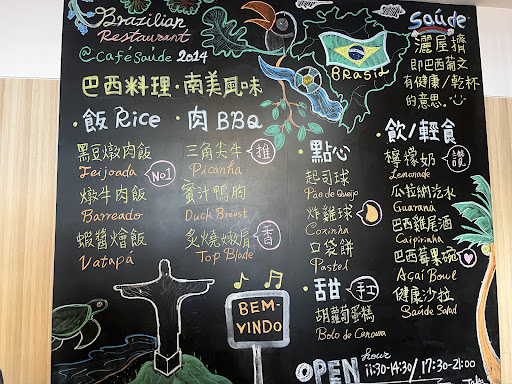 Brazilian
Restaurant
@CaféSaúde 2014
巴西料理·南美風味
BRASIL
Saúde
灑屋擠
即巴西葡文
有健康/乾杯
的意思
·飯Rice
黑豆燉肉飯
Feijoada
No1
燉牛肉飯
Barreado
蝦醬燴飯
Vatapá
·肉BBQ
三角尖牛
推
Picanha
蜜汁鴨胸
Duck Breast
炙燒嫩肩
香
Top Blade
·點心
起司球
Pão de Queijo
炸雞球
Coxinha
口袋餅
Pastel
·甜
手工
胡蘿蔔蛋糕
Bolo de Cenoura
·飲/輕食
檸檬奶
Lemonade
瓜拉納汽水
Guaraná
巴西雞尾酒
Caipirinha
巴西莓果碗
Açaí Bowl
健康沙拉
Saúde Salad
BEM-
VINDO
OPEN hour
11:30-14:30/17:30-21:00